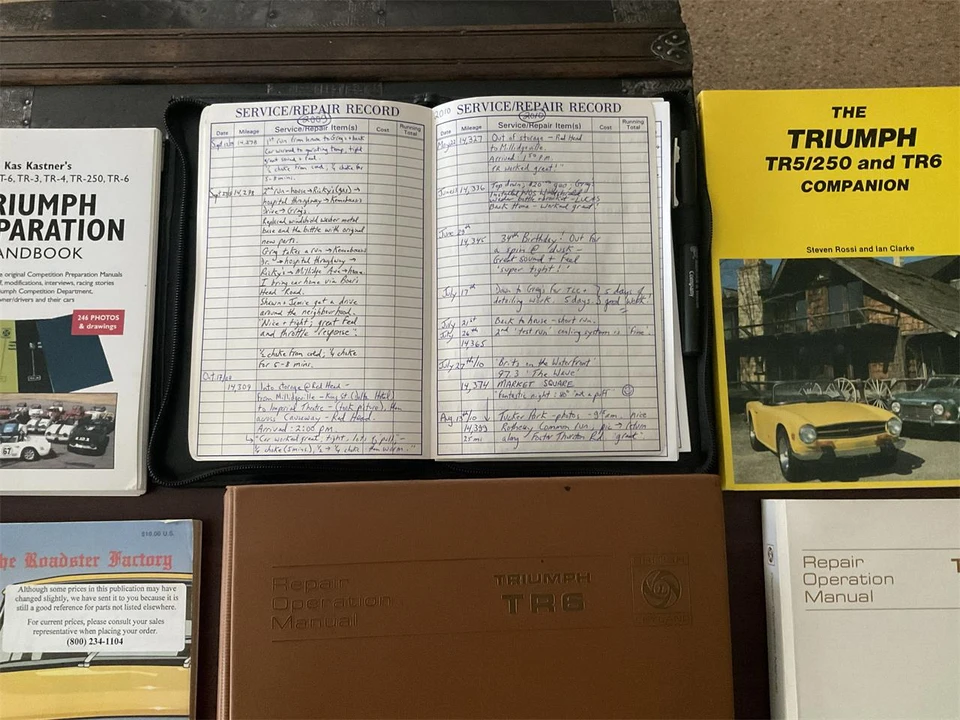 Kas Kastner's
T-6, TR-3, TR-4, TR-250, TR-6
RIUMPH
PARATION
ANDBOOK
e original Competition Preparation Manuals
f, modifications, interviews, racing stories
umph Competition Department,
wner/drivers and their cars
246 PHOTOS
& drawings
67
SERVICE/REPAIR RECORD
2009
Date Mileage Service/Repair Item(s) Cost Running Total
14,278 1st run from house to Greg's + back
Car warmed to quieting temp, tight
great sound + feel
3/4 choke from cold, 1/2 choke for
5-8 mins.
2nd run - house → Ricky's (gas) →
hospital Hwy →
drive → Greg's.
Replaced windshield washer metal
base and the bottle with original
new parts.
Greg takes a run →
hospital
Ricky's → Millidge Ave → home
I bring car home via Boar's
Head Road.
Shawn + Jamie got a drive
around the neighbourhood.
"Nice + tight; great feel
and throttle response".
1/2 choke from cold; 1/4 choke
for 5-8 mins.
Oct 17/09
14,309 Into storage @ Red Head -
from Millidgeville - King St
to Imperial Theatre - (took picture), then
across Causeway - Red Head.
Arrived - 2:00 pm.
"Car worked great, tight, lots 'o pull, -
2010 SERVICE/REPAIR RECORD
2010
Date Mileage Service/Repair Item(s) Cost Running Total
14,327 Out of storage - Red Head
to Millidgeville.
Arrived 1 pm.
worked great!"
14,336 Top down, $20 gas; Greg
Washer bottle
Back Home - worked grand.
June 29th
14,345 34th Birthday! Out for
a spin @ dusk -
Great sound + feel
'super tight!!'
July 17th Down to Greg's for
detailing work. 5 days.
5 days of
good work
July 21st Back in house - short run.
July 26th 2nd 'test run' cooling system is 'fine'.
14,365
July 27th/10 'Brits on the Waterfront'
97.3 'The Wave'
14,374 MARKET SQUARE
'fantastic night: 80°
Aug 15th/10 Tucker Park - photos - 9 am, nice
14,399 Rothesay Common run, pic → return
25 mi along 'Foster Thurston Rd.' 'great'.
Company
THE
TRIUMPH
TR5/250 and TR6
COMPANION
Steven Rossi and Ian Clarke
$16.00 U.S.
he Roadster Factory
Although some prices in this publication may have
changed slightly, we have sent it to you because it is
still a good reference for parts not listed elsewhere.
For current prices, please consult your sales
representative when placing your order.
(800) 234-1104
Repair
Operation
Manual
TRIUMPH
TR6
Repair
Operation
Manual
T